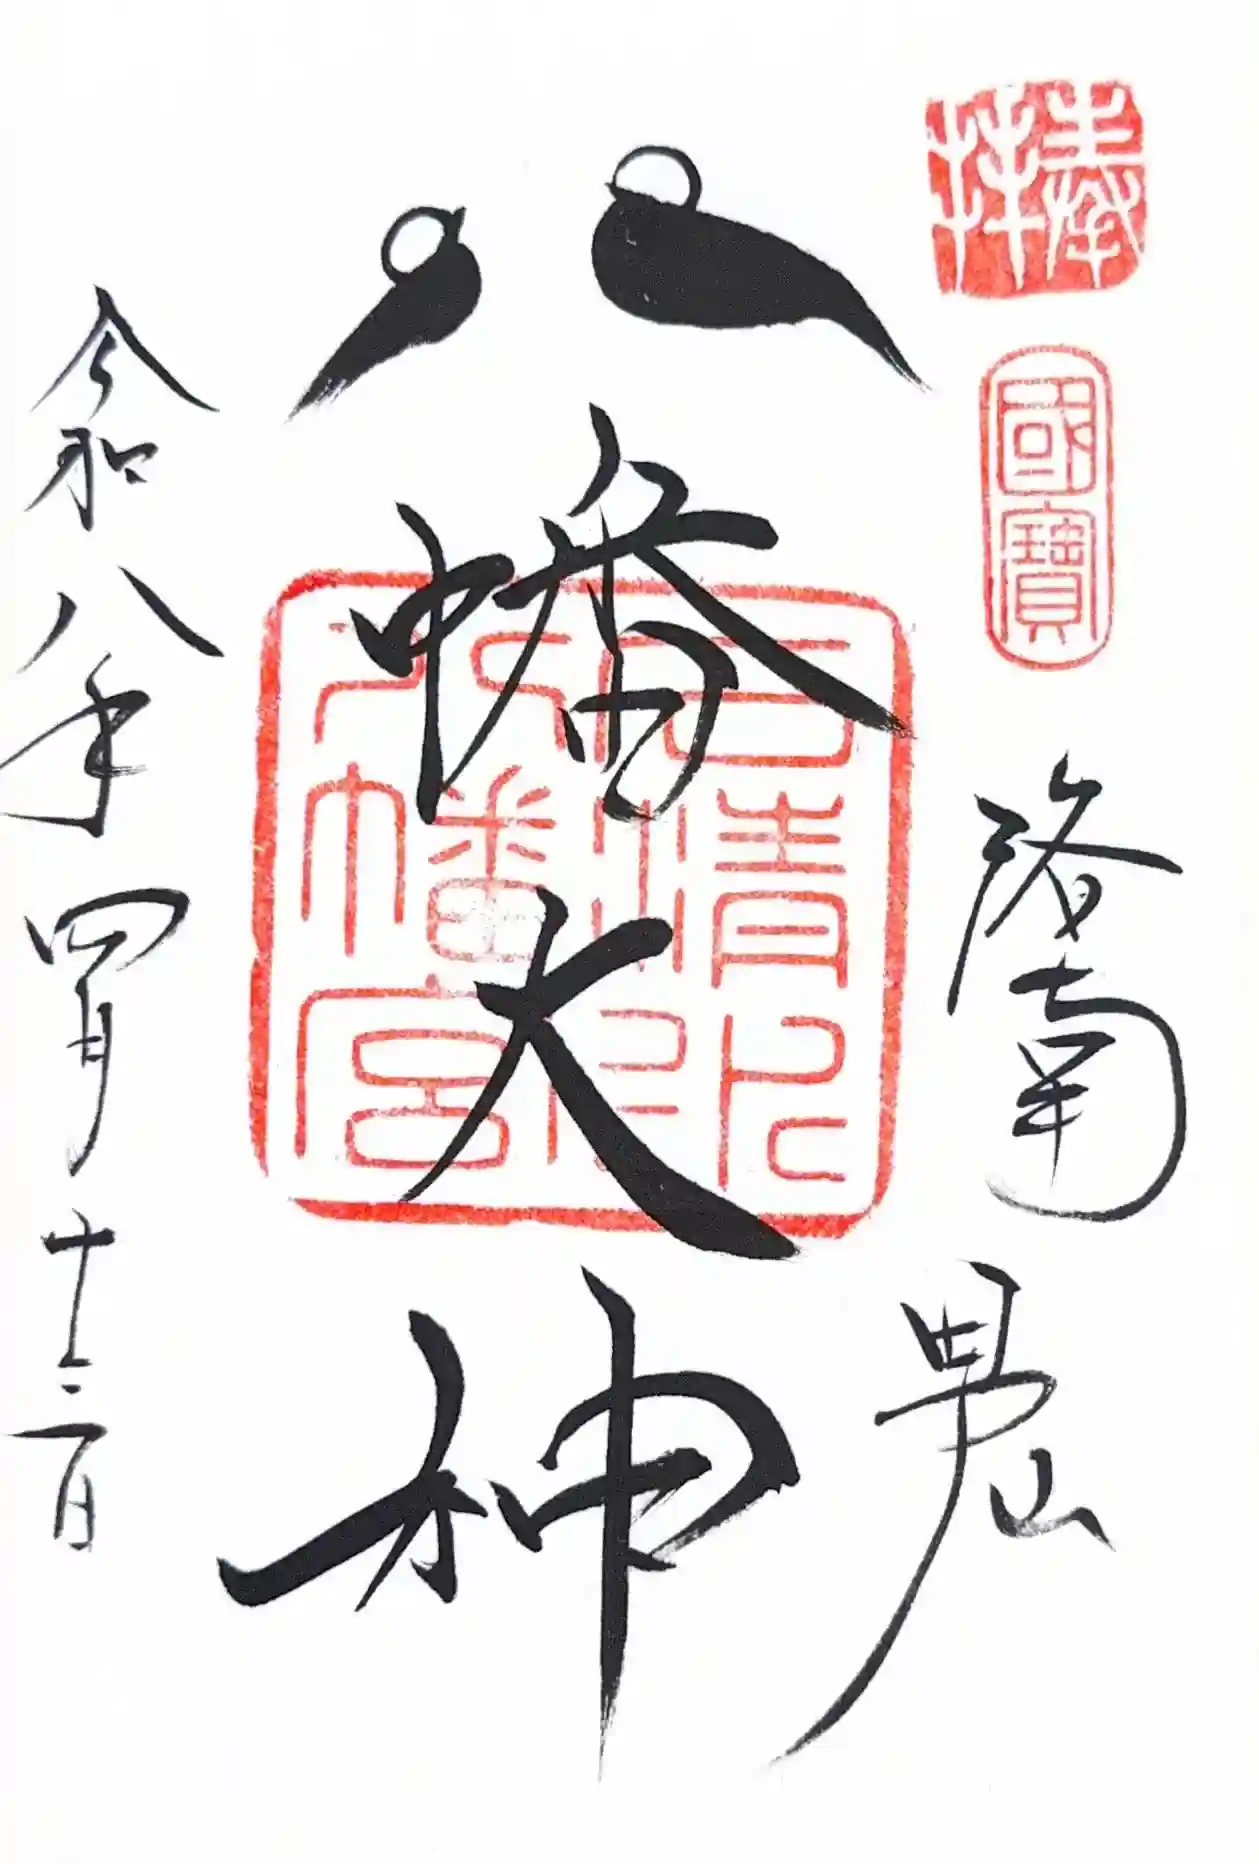 奉拝
國寶
洛南
男山
八幡大神
石清水
八幡宮
令和八年四月十二日